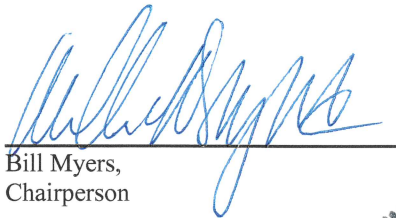 Bill Myers,
Chairperson